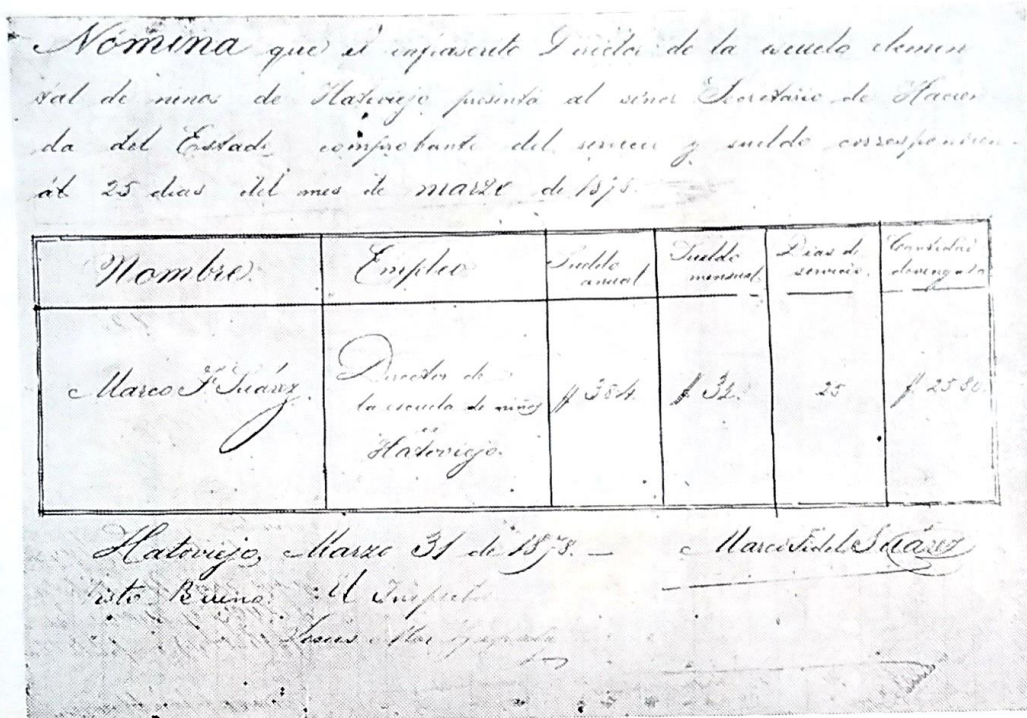 Nómina que el infrascrito Director de la escuela elemen
tal de niños de Hatoviejo presenta al señor Secretario de Hacien
da del Estado, comprobante del servicio y sueldo correspondien
á 25 dias del mes de marzo de 1878.
Nombre. Empleo Sueldo anual Sueldo mensual. Dias de servicio. Cantidad devengada
Marco F. Suárez. Director de la escuela de niños Hatoviejo. $ 384. $ 32. 25 $ 25 80.
Hatoviejo, Marzo 31 de 1878. — Marco Fidel Suárez
Visto Bueno El Inspector
Jesus